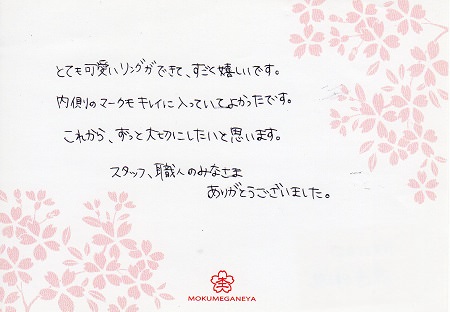 とても可愛いリングができて、すごく嬉しいです。
内側のマークもキレイに入っていてよかったです。
これから、ずっと大切にしたいと思います。
スタッフ、職人のみなさま
ありがとうございました。
MOKUMEGANEYA